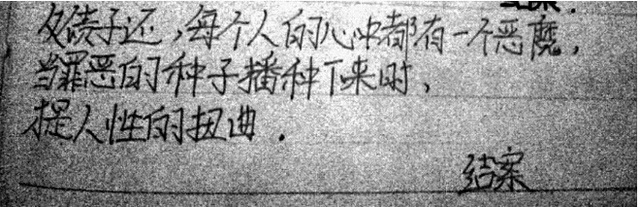 父债子还,每个人的心中都有一个恶魔,
当罪恶的种子播种下来时,
是人性的扭曲.
结案